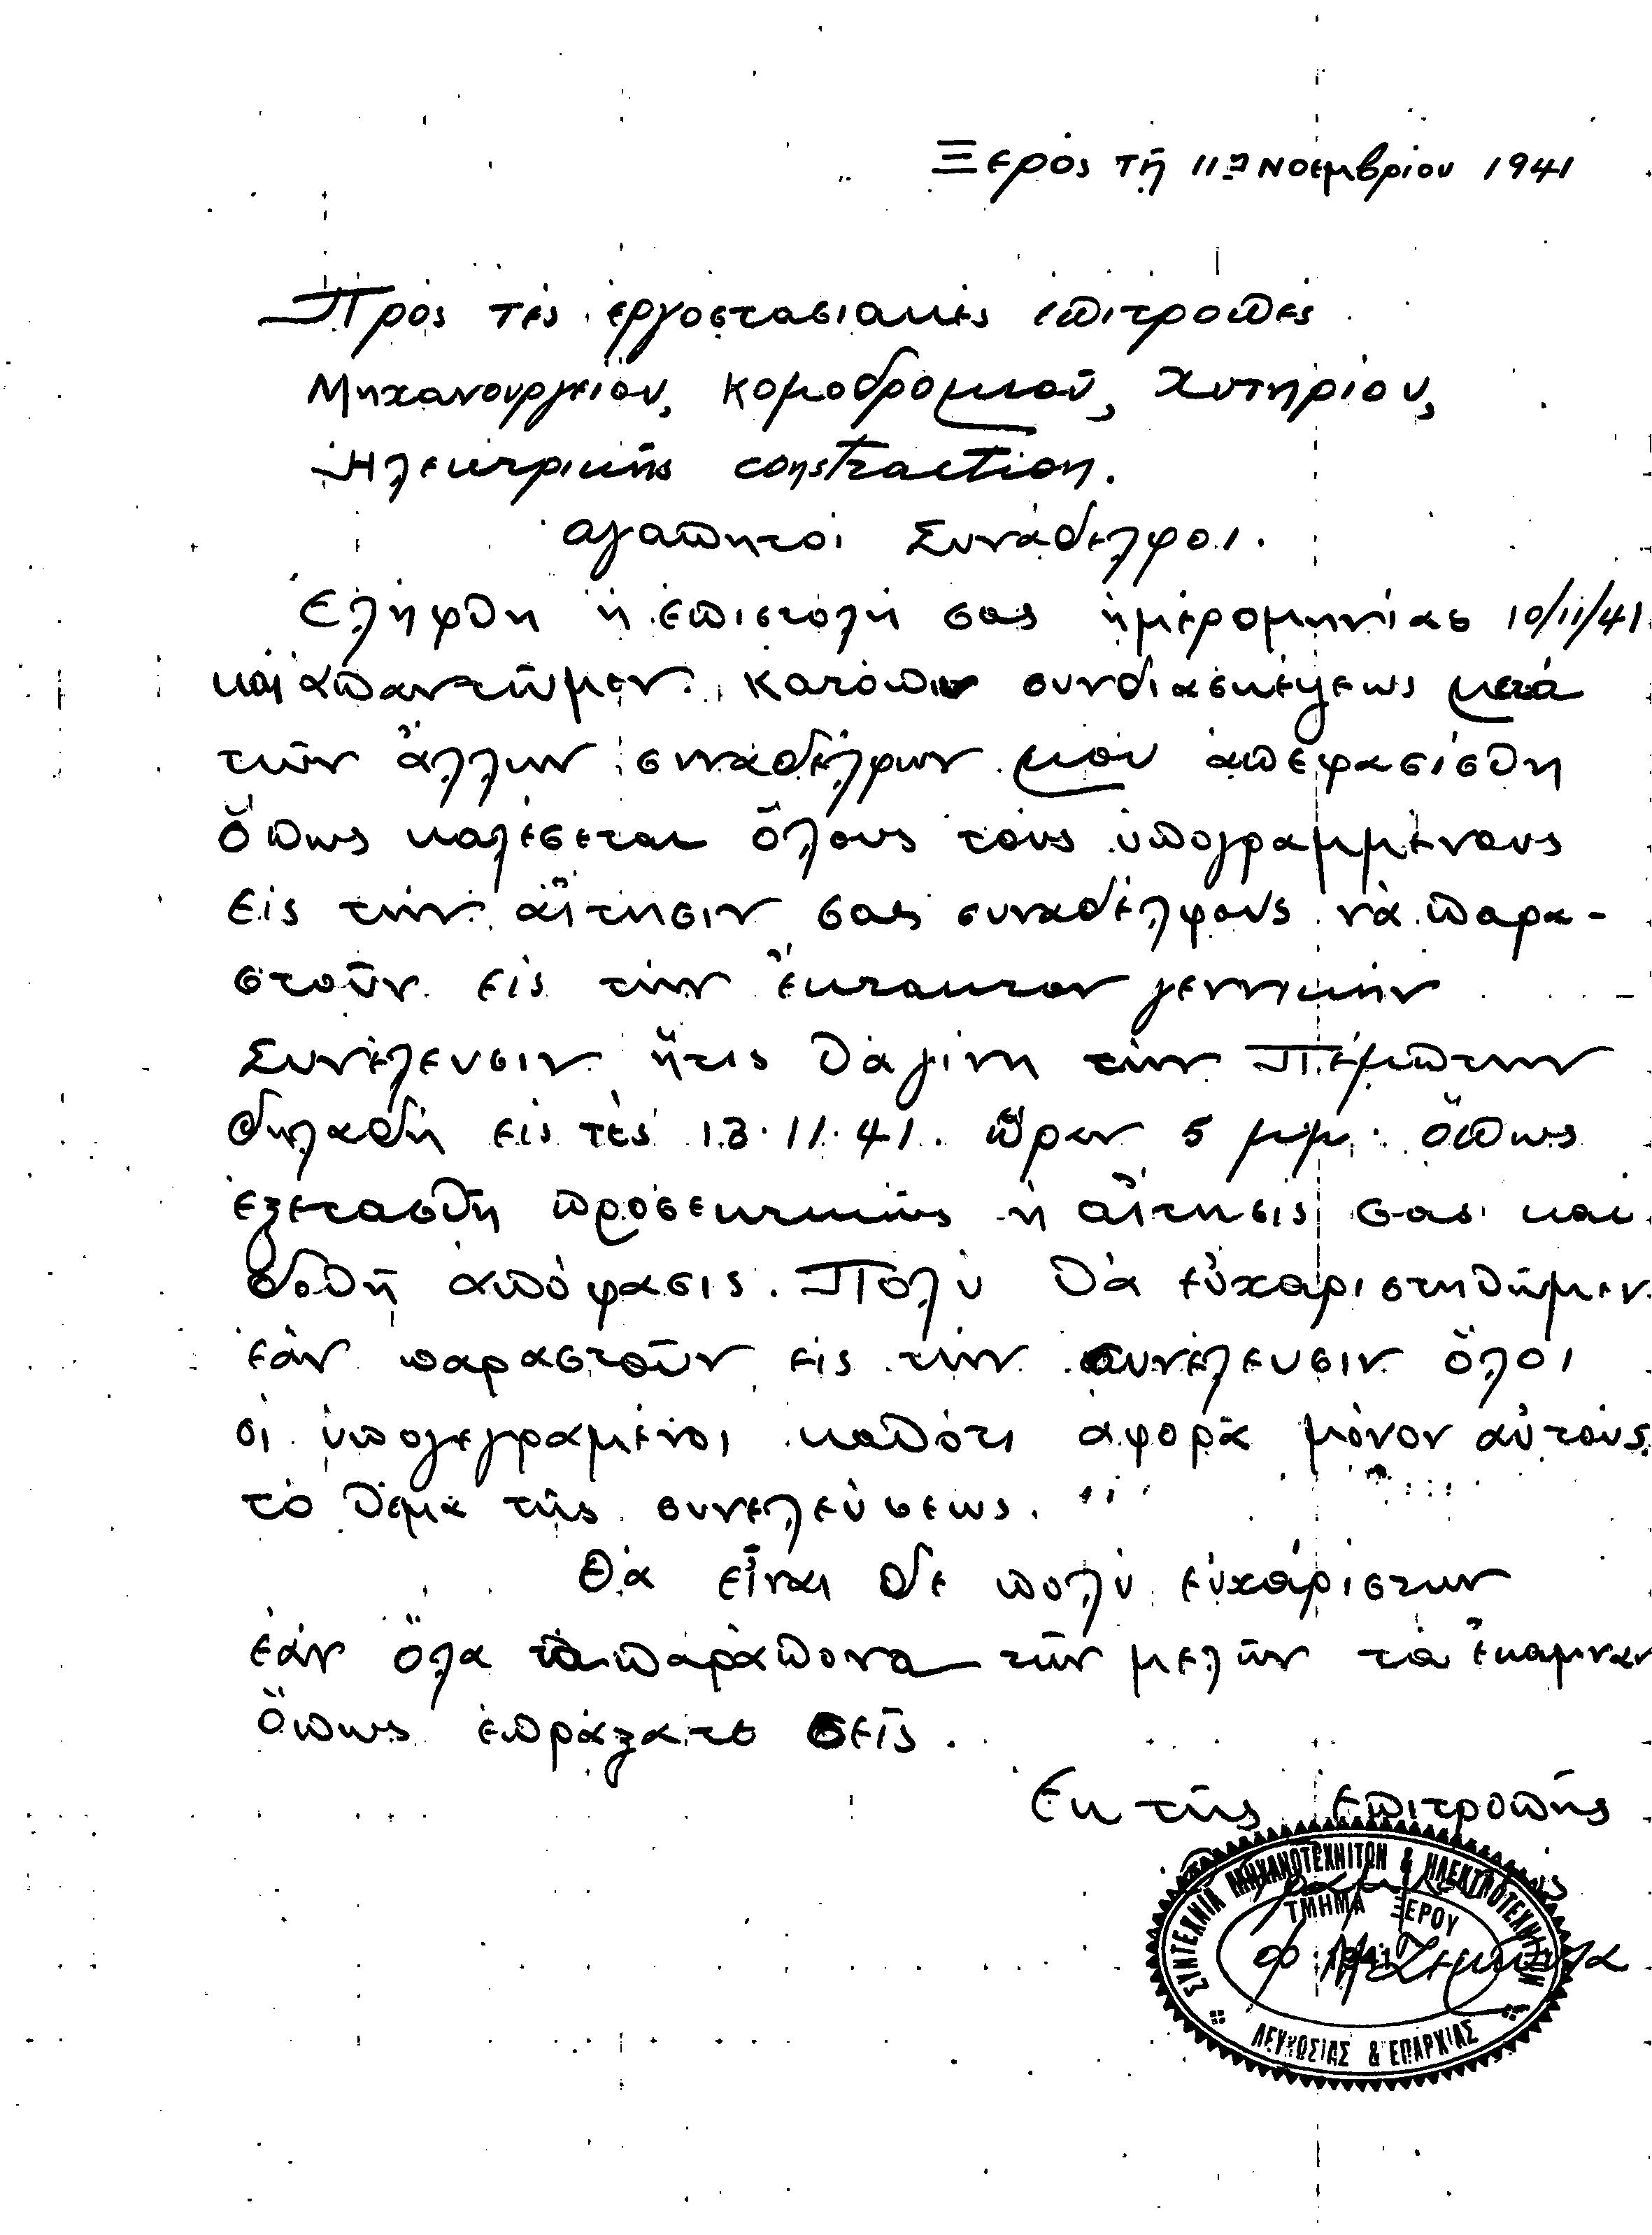 Ξερός τῇ 11η Νοεμβρίου 1941
Πρός τές ἐργοστασιακές ἐπιτροπές
Μηχανουργείου, Κομοδρομιοῦ, Χυτηρίου,
Ηλεκτρικῆς constraction.
αγαπητοί Συνάδελφοι.
Ελήφθη ἡ ἐπιστολή σας ἡμερομηνίας 10/11/41
καί ἀπαντῶμεν. Κατόπιν συνδιασκέψεως μετά
τῶν ἄλλων συναδέλφων μου ἀπεφασίσθη
ὅπως καλέσεται ὅλους τούς ὑπογραμμένους
εἰς τήν αἴτησιν σας συναδέλφους νὰ παρα-
στοῦν εἰς τήν ἔκτακτον γεννικήν
Συνέλευσιν ἥτις θά γίνη τήν Πέμπτην
δηλαδή εἰς τές 13.11.41. ὥραν 5 μμ. ὅπως
ἐξετασθῆ προσεκτικῶς ἡ αἴτησις σας καί
δοθῆ ἀπόφασις. Πολύ θά εὐχαριστηθῶμεν
ἐάν παραστοῦν εἰς τήν συνέλευσιν ὅλοι
οἱ ὑπογεγραμένοι καθότι ἀφορᾶ μόνον αὐτούς
τό θέμα τῆς συνελεύσεως.
Θά εἶναι δε πολύ εὐχάριστων
ἐάν ὅλα τὰ παράπονα τῶν μελῶν τά ἔκαμναν
ὅπως ἐπράξατε σεῖς.
Εκ τῆς Επιτροπῆς
ΣΥΝΤΕΧΝΙΑ ΜΗΧΑΝΟΤΕΧΝΙΤΩΝ & ΗΛΕΚΤΡΟΤΕΧΝΙΤΩΝ
ΤΜΗΜΑ ΞΕΡΟΥ
1941
ΛΕΥΚΩΣΙΑΣ & ΕΠΑΡΧΙΑΣ